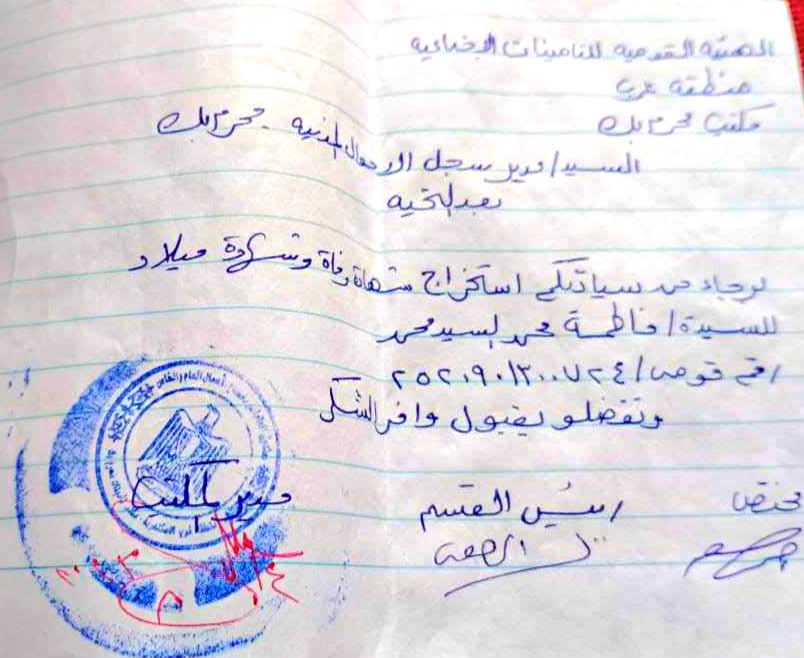 الهيئة القومية للتامينات الاجتماعية
منطقة غرب
مكتب محرم بك
السيد / مدير سجل الاحوال المدنيه - محرم بك
بعد التحيه
برجاء من سيادتكم استخراج شهادة وفاة وشهادة ميلاد
للسيدة / فاطمة محمد السيد محمد
رقم قومى / ٢٥٢٠٩٠١٣٠٠٧٢٤
وتفضلو بقبول وافر الشكر
مختص
رئيس القسم
مدير المكتب